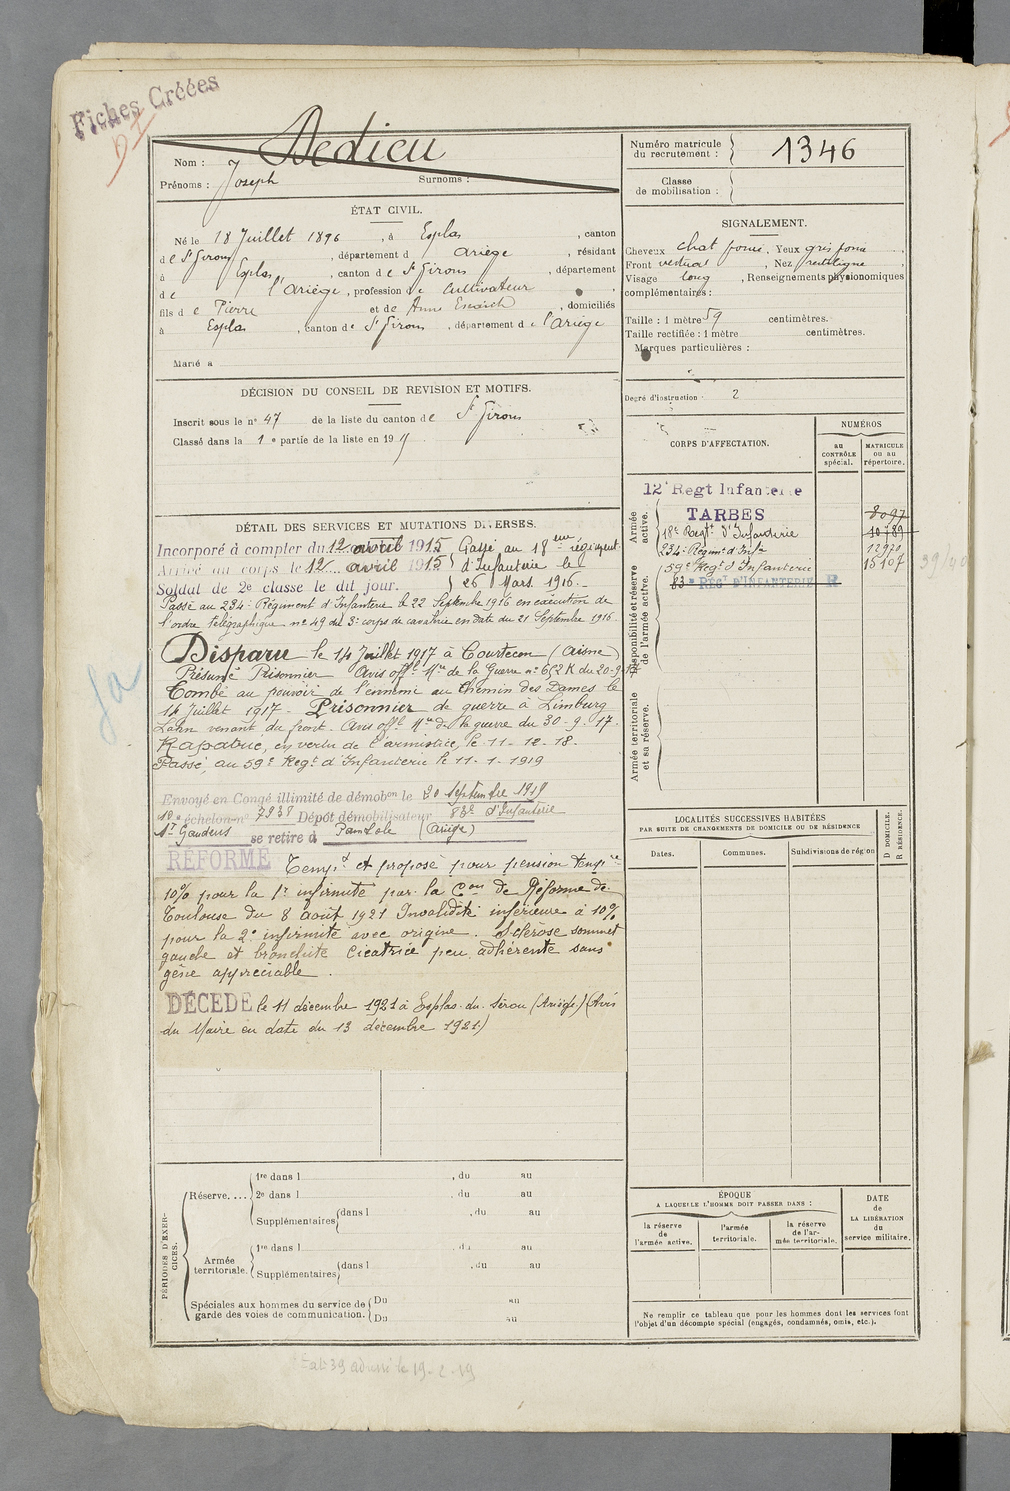 Fiches Créées
Dedieu
Nom :
Prénoms : Joseph
Surnoms :
Numéro matricule
du recrutement :
1346
Classe
de mobilisation :
ÉTAT CIVIL.
Né le 18 Juillet 1896, à Esplas, canton
de St Girons, département d Ariège, résidant
à Esplas, canton de St Girons, département
de l'Ariège, profession de Cultivateur
fils de Pierre et de Anne, domiciliés
à Esplas, canton de St Girons, département de l'Ariège
Marié à
SIGNALEMENT.
Cheveux chat foncé. Yeux gris foncé,
Front vertical, Nez rectiligne,
Visage long, Renseignements physionomiques
complémentaires :
Taille : 1 mètre 59 centimètres.
Taille rectifiée : 1 mètre centimètres.
Marques particulières :
Degré d'instruction : 2
DÉCISION DU CONSEIL DE REVISION ET MOTIFS.
Inscrit sous le n° 47 de la liste du canton de St Girons
Classé dans la 1e partie de la liste en 19
CORPS D'AFFECTATION.
NUMÉROS
au
CONTRÔLE
spécial.
MATRICULE
ou au
répertoire.
Armée
active.
12e Regt Infanterie
TARBES
8097
18e Regt d'Infanterie 10789
234e Régimt d'Infie 12970
59e Regt d'Infanterie 15107
83e REGt D'INFANTERIE R
39/40
Disponibilité et réserve
de l'armée active.
Armée territoriale
et sa réserve.
DÉTAIL DES SERVICES ET MUTATIONS DIVERSES.
Incorporé à compter du 12 avril 1915 Passé au 18eme régiment
Arrivé au corps le 12 avril 1915 d'Infanterie le
Soldat de 2e classe le dit jour. 26 Mars 1916.
Passé au 234e Régiment d'Infanterie le 22 Septembre 1916 en exécution de
l'ordre télégraphique n° 49 du 3e corps de cavalerie en date du 21 Septembre 1916
Disparu le 14 Juillet 1917 à Courtecon (Aisne)
Présumé Prisonnier Avis offl Mre de la Guerre n° 652 K du 20-9-17
Tombé au pouvoir de l'ennemi au Chemin des Dames le
14 Juillet 1917 - Prisonnier de guerre à Limburg
Lahn venant du front. Avis offl Mre de la guerre du 30-9-17.
Rapatrié, en vertu de l'armistice, le 11-12-18.
Passé, au 59e Regt d'Infanterie le 11-1-1919
Envoyé en Congé illimité de démobon le 20 septembre 1919
10e échelon n° 7938 Dépôt démobilisateur 83e d'Infanterie
St Gaudens se retire à (Ariège)
RÉFORMÉ Tempre et proposé pour pension tempre
10% pour la 1re infirmité par la Con de Réforme de
Toulouse du 8 août 1921 Invalidité inférieure à 10%
pour la 2e infirmité avec origine. Sclérose sommet
gauche et bronchite Cicatrice peu adhérente sans
gêne appréciable.
DÉCÉDÉ le 11 décembre 1921 à Esplas-du-Sérou (Ariège) (Avis
du Maire en date du 13 décembre 1921)
LOCALITÉS SUCCESSIVES HABITÉES
PAR SUITE DE CHANGEMENTS DE DOMICILE OU DE RÉSIDENCE
Dates.
Communes.
Subdivisions de région
D DOMICILE.
R RÉSIDENCE.
PÉRIODES D'EXERCICES.
Réserve....
1re dans l , du au
2e dans l , du au
Supplémentaires dans l , du au
du au
Armée
territoriale.
1re dans l , du au
Supplémentaires dans l , du au
Spéciales aux hommes du service de
garde des voies de communication.
Du au
Du au
ÉPOQUE
A LAQUELLE L'HOMME DOIT PASSER DANS :
la réserve
de
l'armée active.
l'armée
territoriale.
la réserve
de l'ar-
mée territoriale.
DATE
de
LA LIBÉRATION
du
service militaire.
Ne remplir ce tableau que pour les hommes dont les services font
l'objet d'un décompte spécial (engagés, condamnés, omis, etc.).